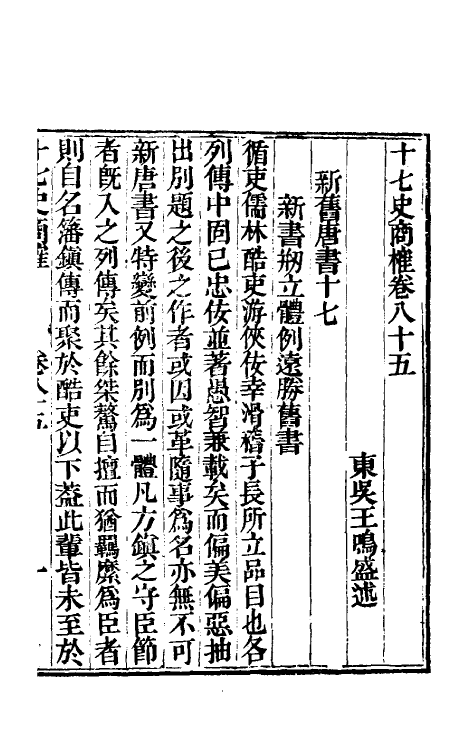 十七史商榷卷八十五
東吳王鳴盛述
新舊唐書十七
新書刱立體例遠勝舊書
循吏儒林酷吏游俠佞幸滑稽子長所立品目也各
列傳中固已忠佞並著愚智兼載矣而偏美偏惡抽
出別題之後之作者或因或革隨事爲名亦無不可
新唐書又特變前例而別爲一體凡方鎮之守臣節
者旣入之列傳矣其餘桀驁自擅而猶羈縻爲臣者
則自名藩鎮傳而聚於酷吏以下葢此輩皆未至於
十七史商榷 卷八十五 一